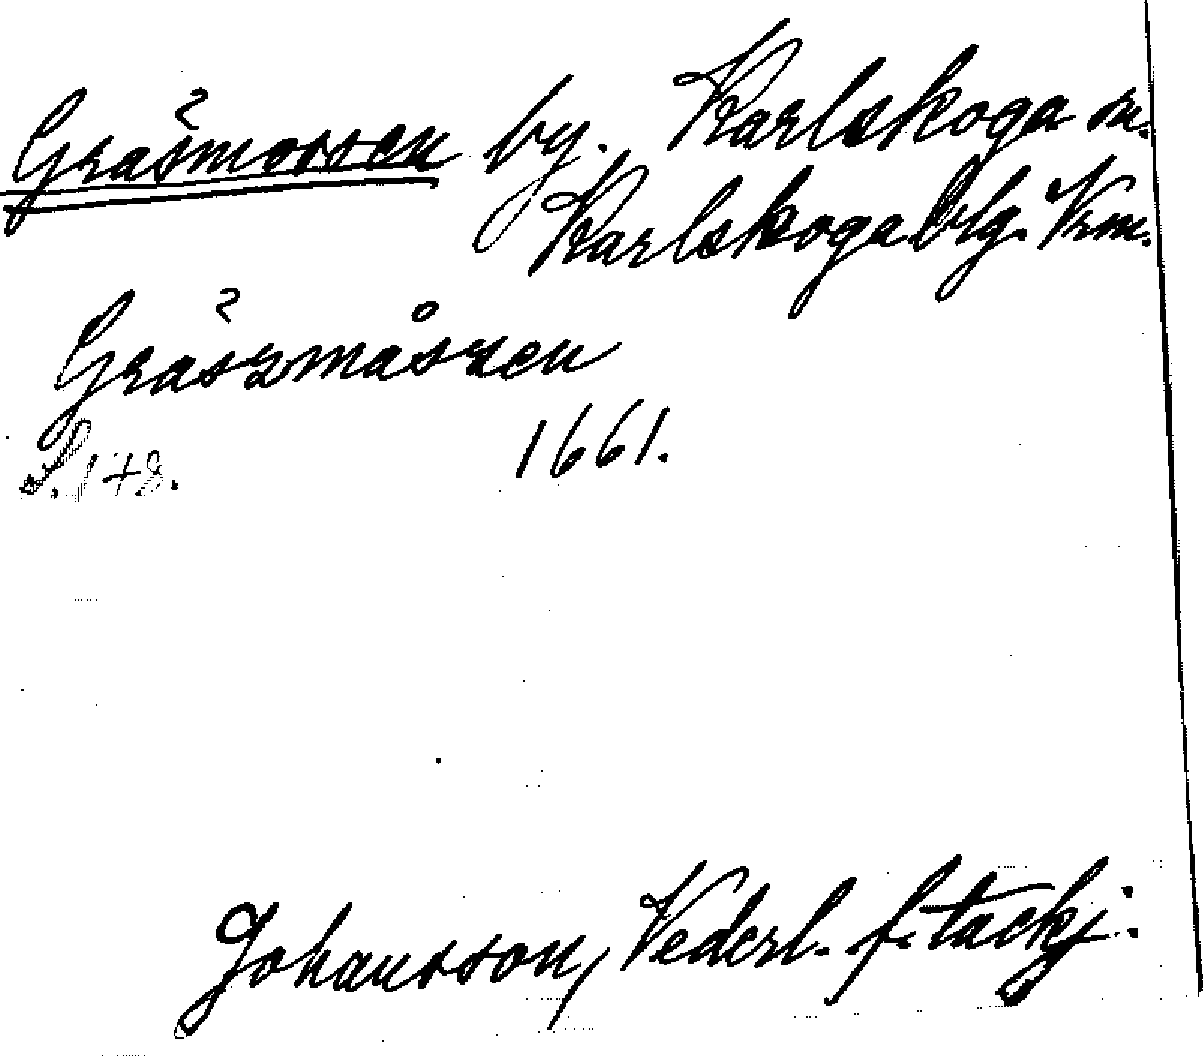 Gräsmossen by. Karlskoga sn.
Karlskoga blg. Vrm.
Gräszmåszen
S. 178. 1661.
Johansson, Vederl. f. tackj.